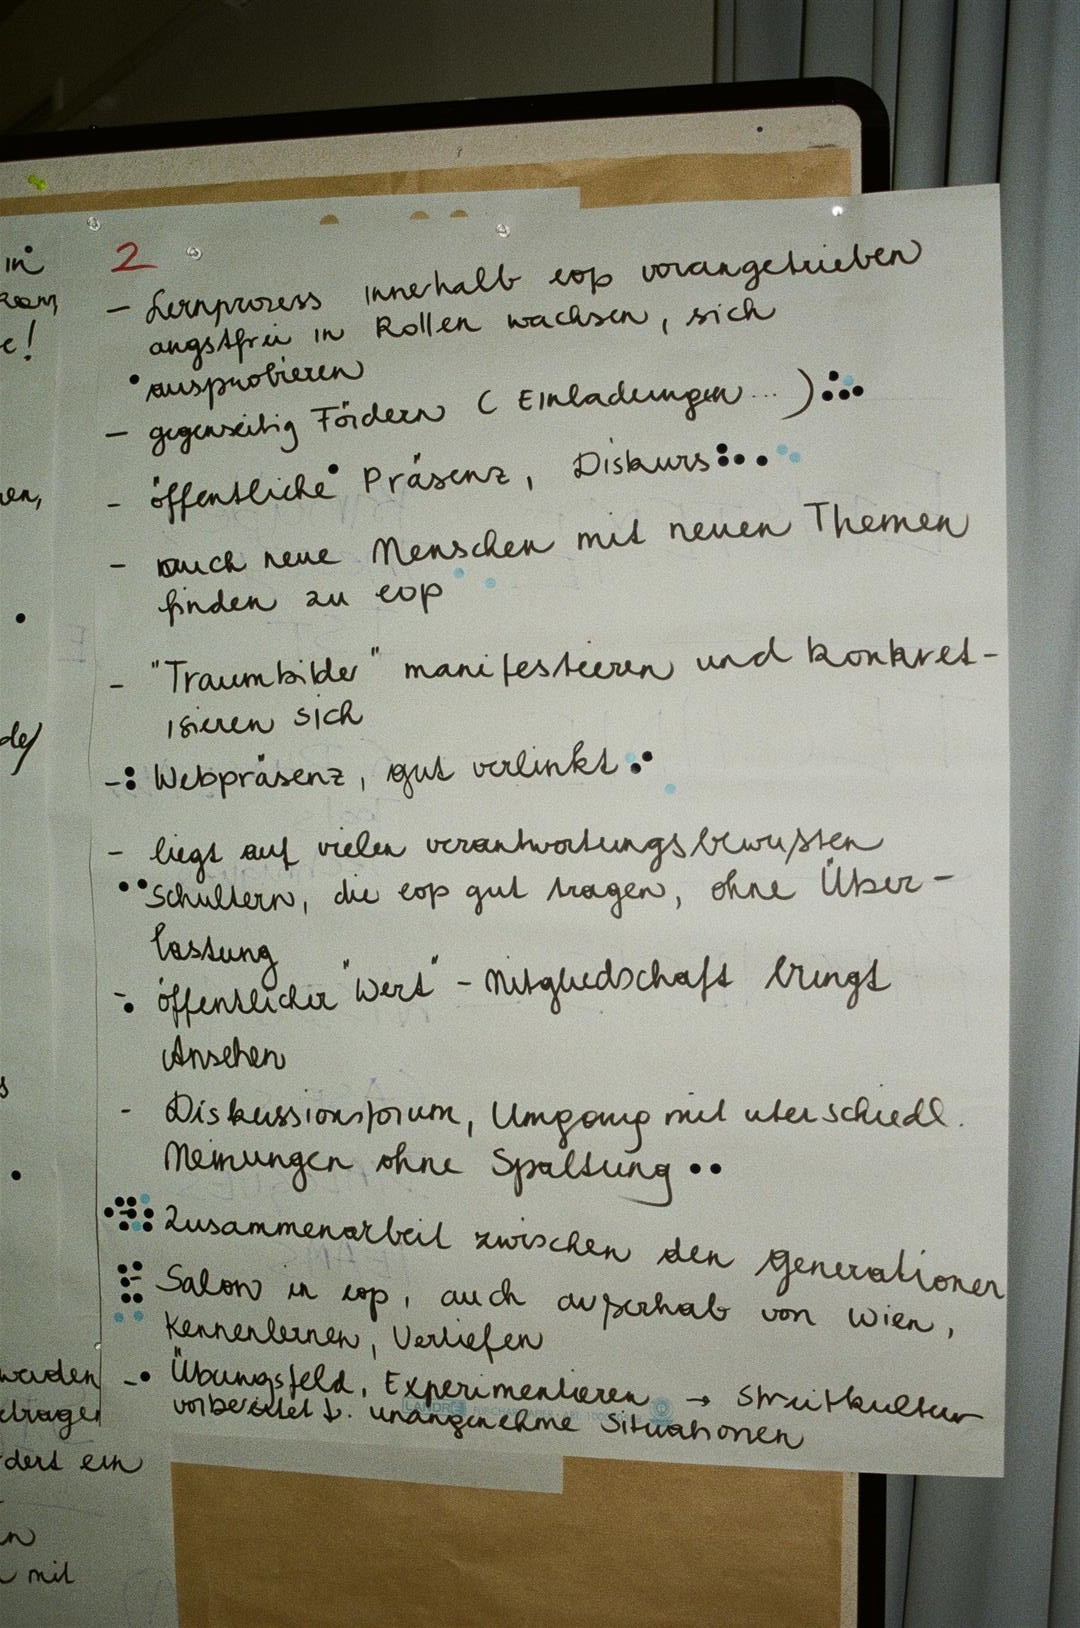 2
- Lernprozess innerhalb eop vorangetrieben
angstfrei in Rollen wachsen, sich
ausprobieren
- gegenseitig Fördern (Einladungen...)
- öffentliche Präsenz, Diskurs
- auch neue Menschen mit neuen Themen
finden zu eop
- "Traumbilder" manifestieren und konkret-
isieren sich
- Webpräsenz, gut verlinkt
- liegt auf vielen verantwortungsbewussten
Schultern, die eop gut tragen, ohne Über-
lastung
- öffentlicher "Wert" - Mitgliedschaft bringt
Ansehen
- Diskussionsforum, Umgang mit uterschiedl.
Meinungen ohne Spaltung
- Zusammenarbeit zwischen den Generationen
- Salon in eop, auch außerhab von Wien,
Kennenlernen, Vertiefen
- Übungsfeld, Experimentieren → Streitkultur
vorbereitet f. unangenehme Situationen
LANDRÉ
in
e!
en,
werden
dert ein
mit